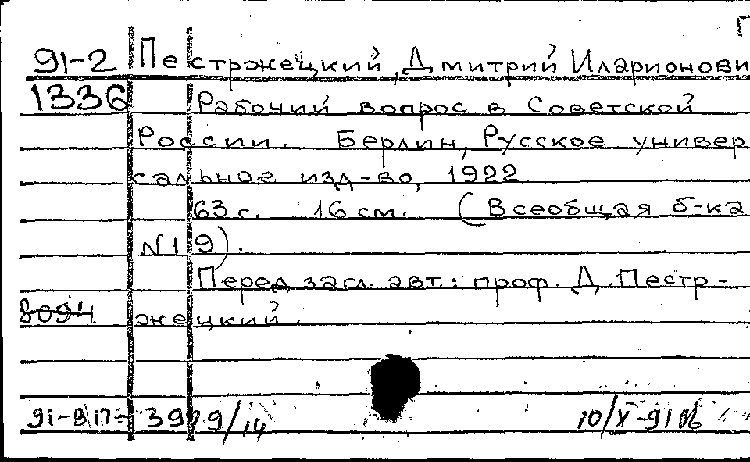 91-2 Пестржецкий, Дмитрий Иларионови
1336 Рабочий вопрос в Советской
России. Берлин, Русское универ
сальное изд-во, 1922
63 с. 16 см. (Всеобщая б-ка
N19).
Перед загл. авт.: проф. Д. Пестр-
8094 жецкий.
39 29/14 10/X-91